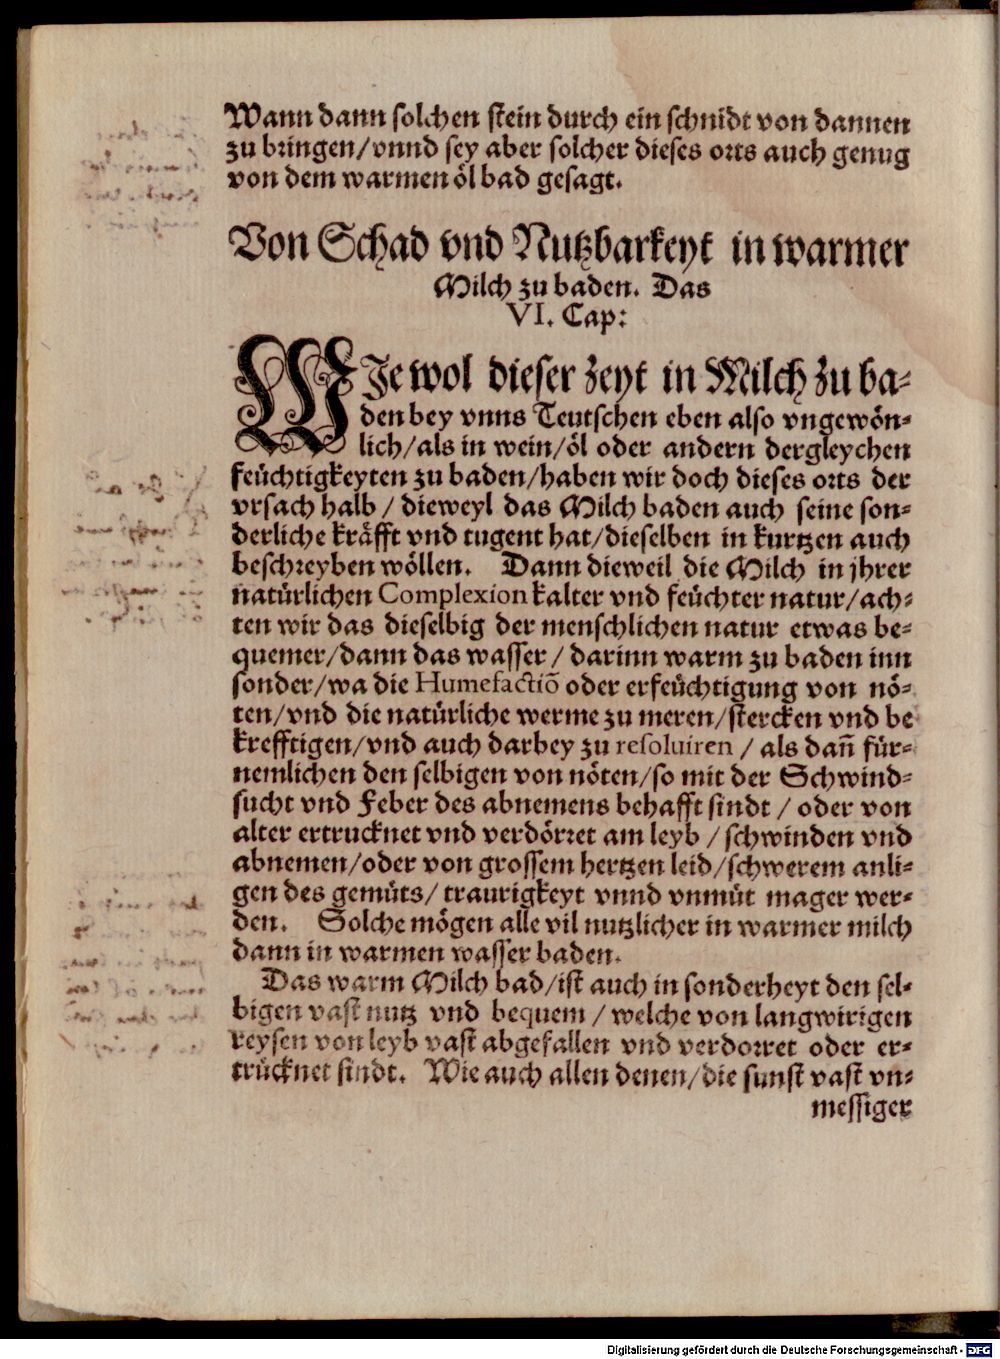 Wann dann solchen stein durch ein schnidt von dannen
zu bringen/vnnd sey aber solcher dieses orts auch genug
von dem warmen öl bad gesagt.
Von Schad vnd Nutzbarkeyt in warmer
Milch zu baden. Das
VI. Cap:
WJe wol dieser zeyt in Milch zu ba-
den bey vnns Teutschen eben also vngewön-
lich/als in wein/öl oder andern dergleychen
feüchtigkeyten zu baden/haben wir doch dieses orts der
vrsach halb / dieweyl das Milch baden auch seine son-
derliche kräfft vnd tugent hat/dieselben in kurtzen auch
beschreyben wöllen. Dann dieweil die Milch in jhrer
natürlichen Complexion kalter vnd feüchter natur/ach-
ten wir das dieselbig der menschlichen natur etwas be-
quemer/dann das wasser / darinn warm zu baden inn
sonder/wa die Humefactiõ oder erfeüchtigung von nö-
ten/vnd die natürliche werme zu meren/stercken vnd be
krefftigen/vnd auch darbey zu resoluiren / als dañ für-
nemlichen den selbigen von nöten/so mit der Schwind-
sucht vnd Feber des abnemens behafft sindt / oder von
alter ertrucknet vnd verdörret am leyb / schwinden vnd
abnemen/oder von grossem hertzen leid/schwerem anli-
gen des gemüts/ traurigkeyt vnnd vnmüt mager wer-
den. Solche mögen alle vil nutzlicher in warmer milch
dann in warmen wasser baden.
Das warm Milch bad/ist auch in sonderheyt den sel-
bigen vast nutz vnd bequem / welche von langwirigen
reysen von leyb vast abgefallen vnd verdorret oder er-
trücknet sindt. Wie auch allen denen/die sunst vast vn-
messiger
Digitalisierung gefördert durch die Deutsche Forschungsgemeinschaft - DFG